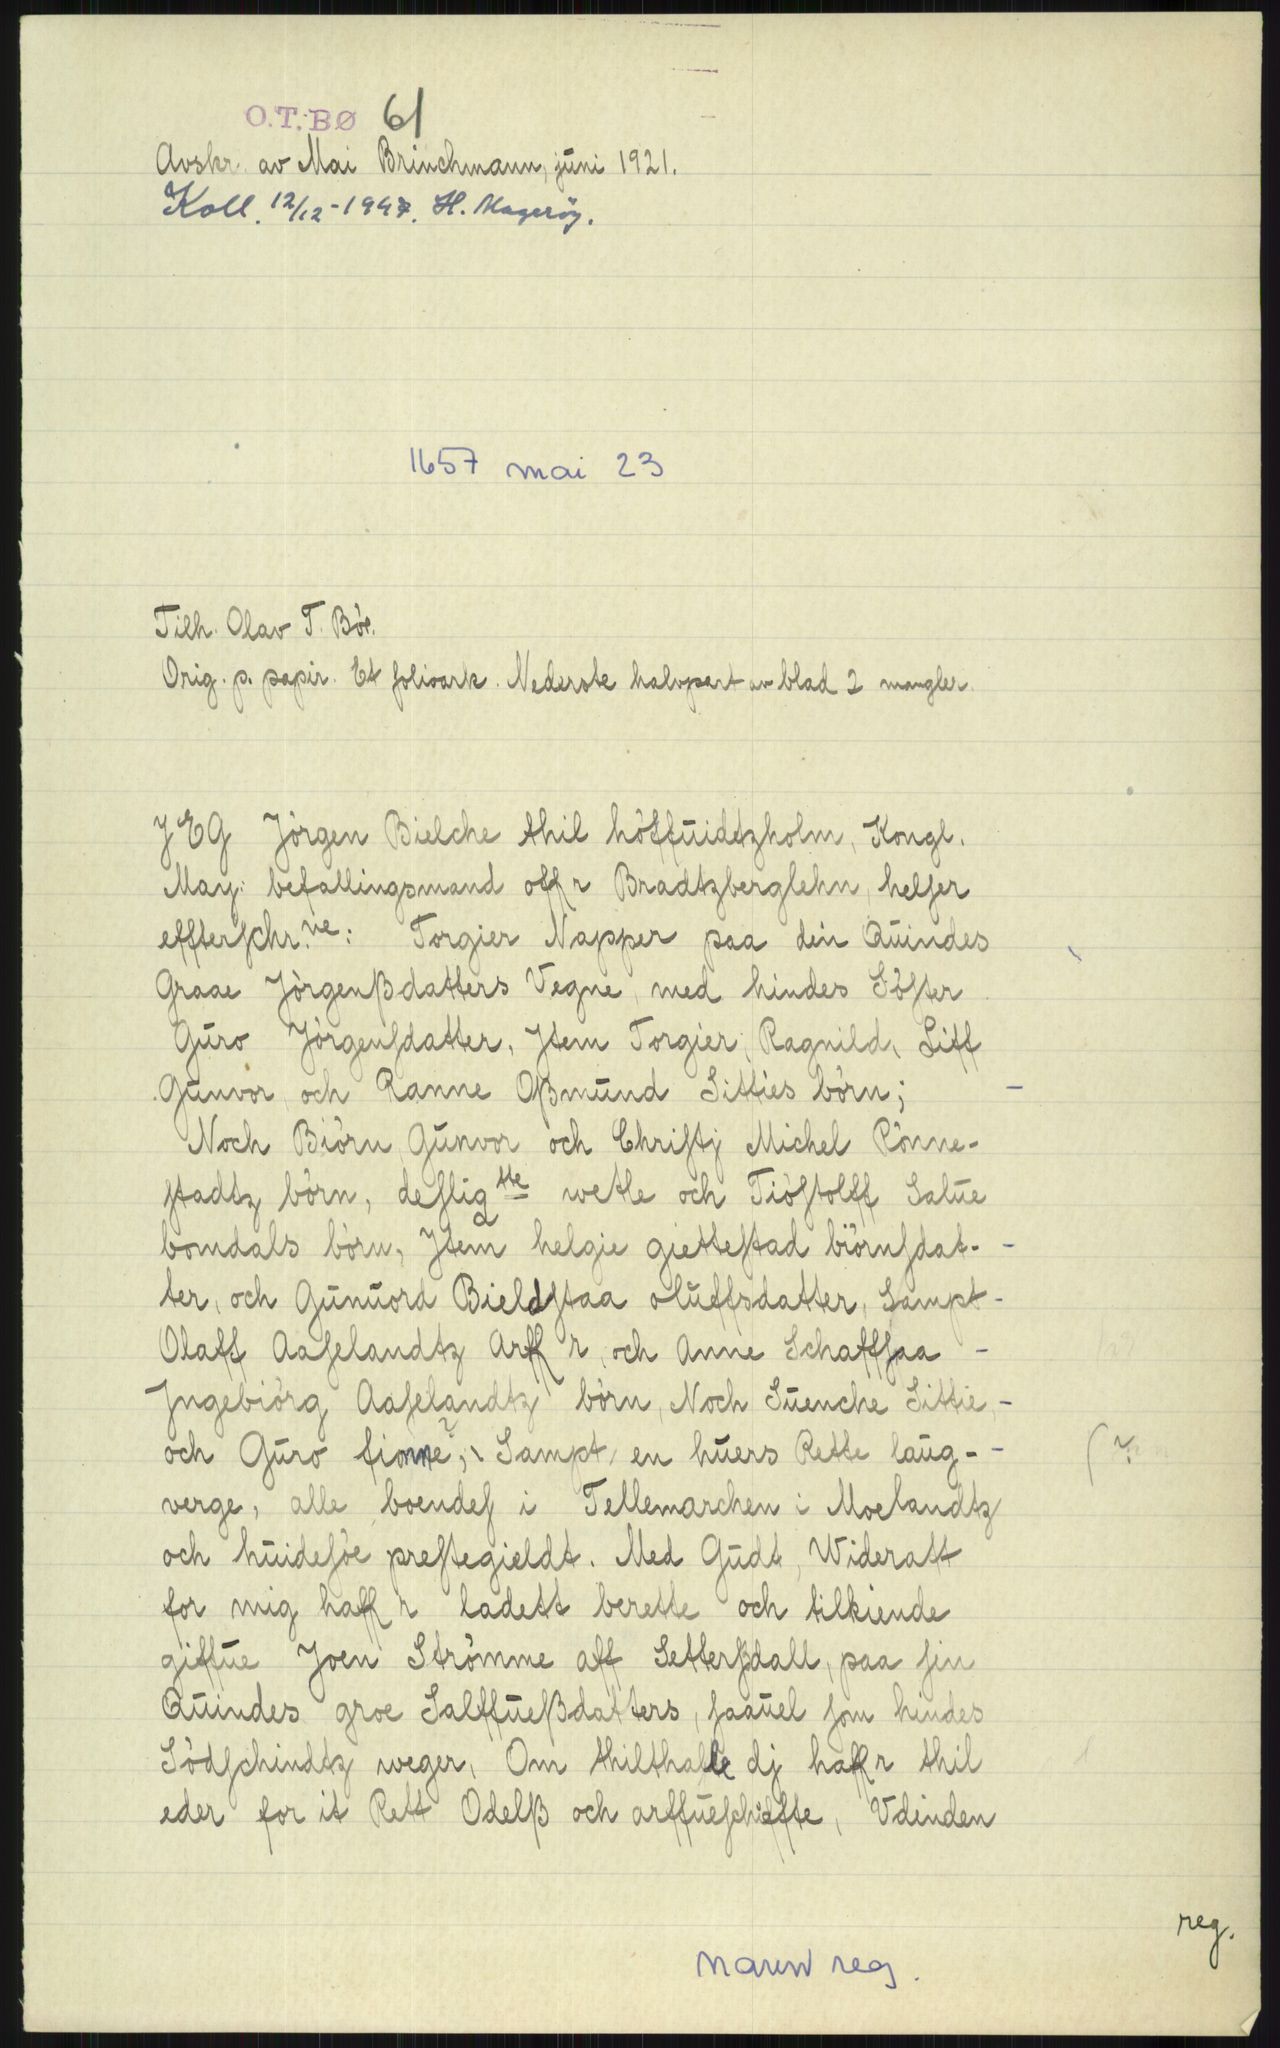 O.T. BØ 61
Avskr. av Mai Brinchmann, juni 1921.
Koll. 12/12-1947. H. Magerøy.
1657 mai 23
Tilh. Olav T. Bøe.
Orig. p. papir. Et folioark. Nederste halvpart av blad 2 mangler.
JEG Jörgen Bielche thil höffuidtzholm, Kongl.
May: befallingsmand offr Bradtzberglehn, helser
effterschr.ne: Torgier Napper paa din Quindes
Graae Jörgenßdatters Vegne, med hindes Söster
Guro Jörgensdatter, Jtem Torgier, Ragnild, Liff
Gunvor, och Ranne Oßmund Sitties börn;
Noch Biörn Gunvor och Christj Michel Rönne-
stadtz börn, desligtte wetle och Tiöstolff Salue
bomdals börn, Jtem helgie gietestad biörnsdat-
ter, och Gunuord Bieldstaa oluffsdatter, Sampt
Olaff Aaselandtz Arffr, och Anne Schaffsaa
Jngebiörg Aaselandtz börn, Noch Suenche Sittie,
och Guro finne?, Sampt, en huers Rette laug-
verge, alle boendes i Tellemarchen i Moelandtz
och huidesöe prestegieldt. Med Gudt, Wideratt
for mig haffr ladett berette och tilkiende
giffue Joen Strömme aff Settersdall, paa sin
Quindes groe Salffueßdatters, saauel som hindes
Södschindtz weger, Om thilthalle dj haffr thil
eder for it Rett Odelß och arffueschiffte, Vdinden
reg.
navnreg.